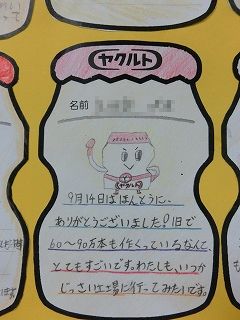 ヤクルト
名前
ヤクルト
9月14日はほんとうに、
ありがとうございました!1日で
60〜90万本も作くっているなんて
とてもすごいです。わたしも、いつか
じっさい工場に行ってみたいです。